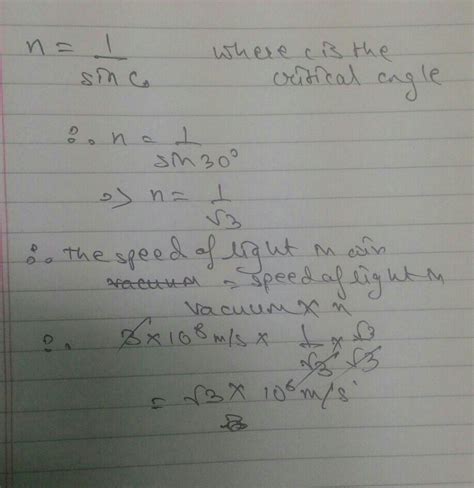 n = 1/sin c where c is the
critical angle
∴ n = 1/sin 30°
=> n = 1/√3
∴ the speed of light in air
vacuum = speed of light in
vacuum x n
∴ 3 x 10⁸ m/s x 1/√3 x √3/√3
= √3 x 10⁸ m/s